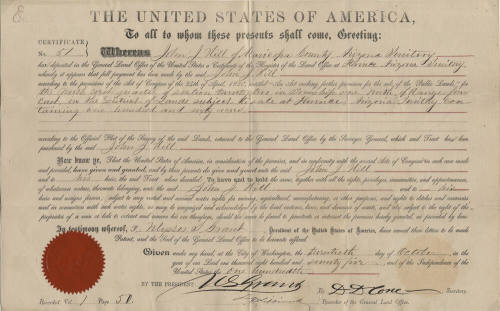 THE UNITED STATES OF AMERICA,
To all to whom these presents shall come, Greeting:
CERTIFICATE
No. 51 Whereas John J Hill of Maricopa County, Arizona Territory
has deposited in the General Land Office of the United States a Certificate of the Register of the Land Office at Florence Arizona Territory,
whereby it appears that full payment has been made by the said John J Hill
according to the provisions of the Act of Congress of the 24th of April, 1820, entitled "An Act making further provision for the sale of the Public Lands," for
the north west quarter of section in Township one north of Range four
East in the District of Lands subject to sale at Florence Arizona Territory Con
taining one hundred and sixty acres
according to the Official Plat of the Survey of the said Lands, returned to the General Land Office by the Surveyor General, which said Tract has been
purchased by the said John J Hill
Now know ye, That the United States of America, in consideration of the premises, and in conformity with the several Acts of Congress in such case made
and provided, have given and granted, and by these presents do give and grant unto the said John J Hill
and to his heirs, the said Tract above described; To have and to hold the same, together with all the rights, privileges, immunities, and appurtenances,
of whatsoever nature, thereunto belonging, unto the said John J Hill and to his
heirs and assigns forever, subject to any vested and accrued water rights for mining, agricultural, manufacturing, or other purposes, and rights to ditches and reservoirs
used in connection with such water rights, as may be recognized and acknowledged by the local customs, laws, and decisions of courts, and also subject to the right of the
proprietor of a vein or lode to extract and remove his ore therefrom, should the same be found to penetrate or intersect the premises hereby granted, as provided by law.
In testimony whereof, I, Ulysses S Grant President of the United States of America, have caused these letters to be made
Patent, and the Seal of the General Land Office to be hereunto affixed.
Given under my hand, at the City of Washington, the twentieth day of October, in the
year of our Lord one thousand eight hundred and seventy five, and of the Independence of the
United States the one hundredth
BY THE PRESIDENT: U S Grant
By D D Cone, Secretary.
Recorded, Vol. 1 Page 51 Recorder of the General Land Office.